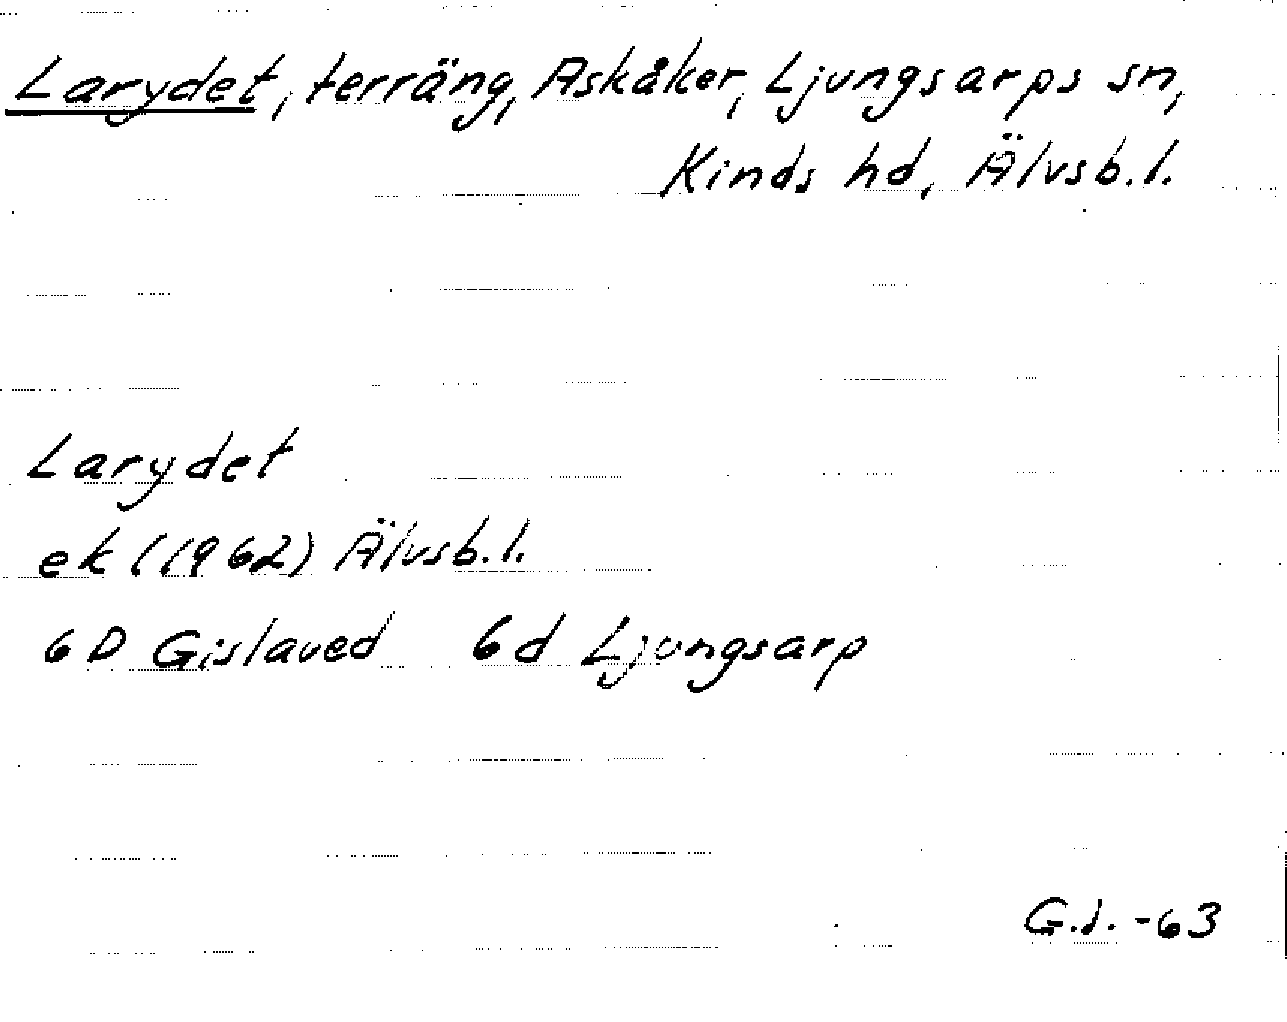 Larydet, terräng, Askåker, Ljungsarps sn,
Kinds hd, Älvsb.l.
Larydet
ek (1962) Älvsb.l.
6D Gislaved 6d Ljungsarp
G.J. -63